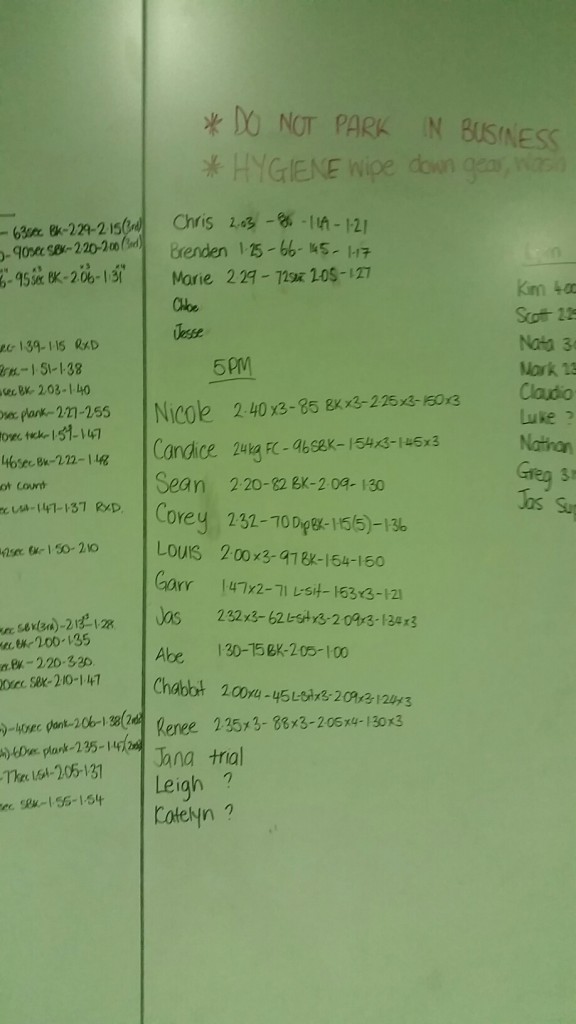 * DO NOT PARK IN BUSINESS
* HYGIENE wipe down gear, wash
- 63sec BK-2.29-2.15(3rd)
-90sec SBK-2.20-2.00(3rd)
-95sec BK-2.06-1.31
1.39-1.15 RxD
-1.51-1.38
sec BK-2.03-1.40
sec plank-2.27-2.55
sec tuck-1.59-1.47
46sec BK-2.22-1.48
not count
-1.47-1.37 RXD.
42sec BK-1.50-2.10
sec SBK(3rd)-2.13-1.28
sec BK-2.00-1.35
sec BK-2.20-3.30
20sec SBK-2.10-1.47
-40sec plank-2.06-1.38(2nd)
-60sec plank-2.35-1.47(2nd)
-77sec LSit-2.05-1.37
sec SBK-1.55-1.54
Chris 2.03 -86 -1.19 -1.21
Brenden 1.25 -66-1.45-1.17
Marie 2.29 - 72sec 2.05-1.27
Chloe
Jesse
5PM
Nicole 2.40 x3-85 BK x3-2.25x3-1.50x3
Candice 24kg FC -96SBK-1.54x3-1.45x3
Sean 2.20-82 BK-2.09-1.30
Corey 2.32-70 Dip BK-1.15(5)-1.36
Louis 2.00 x3-97 BK-1.54-1.50
Garr 1.47x2-71 L-Sit-1.53x3-1.21
Jas 2.32x3-62 L-Sitx3-2.09x3-1.34x3
Abe 1.30-75BK-2.05-1.00
Chabbit 2.00x4-45 L-Sitx3-2.09x3-1.24x3
Renee 2.35x3-88x3-2.05x4-1.30x3
Jana trial
Leigh ?
Katelyn ?
Kim 4.00
Scott 2.2
Nata 3
Mark 2.3
Claudio
Luke ?
Nathan
Greg 3.
Jas Su